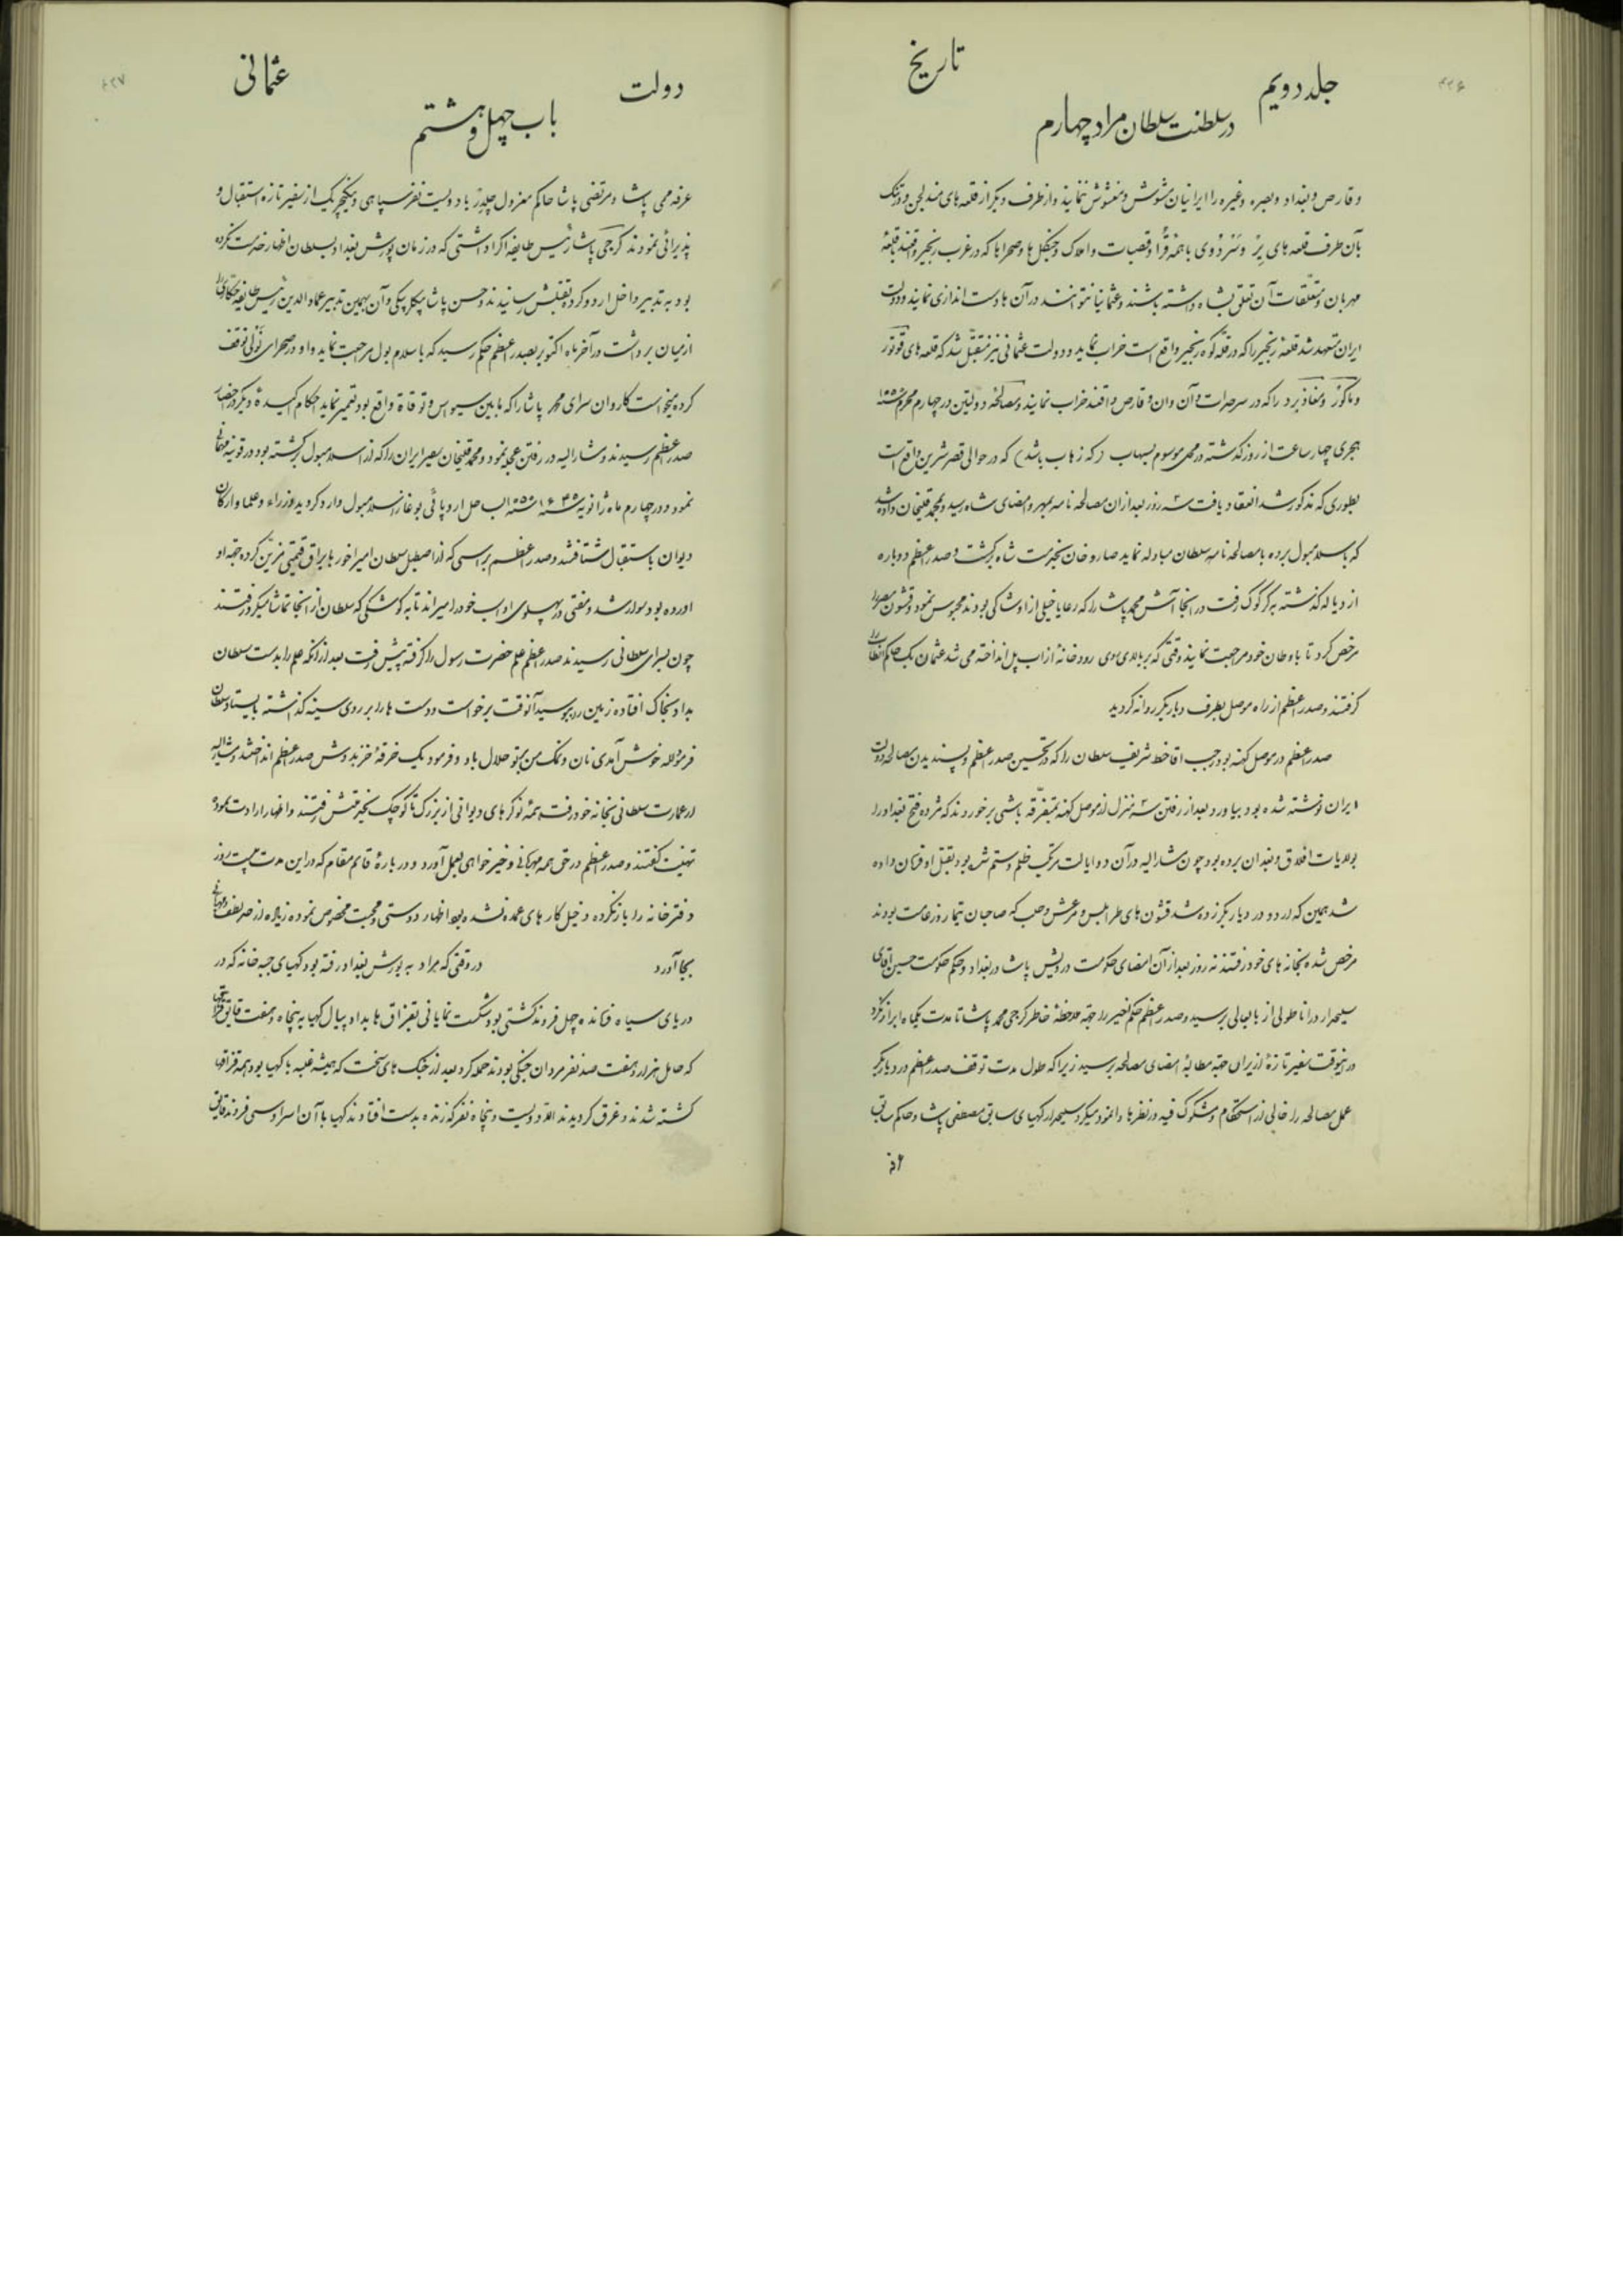 ۴۲۶
جلد دویم
تاریخ
در سلطنت سلطان مراد چهارم
وقارص و بغداد و بصره و غیره را ایرانیان مشوش و مغشوش ننمایند و از طرف دیگر از قلعه‌های مندلجین و درتنک
بآن طرف قلعه های و با همه قرا و قصبات و املاک و جنگل ها و صحراها که در غرب زنجیر واقعند با قلعهٔ
مهربان و متعلقات آن تعلق بشاه داشته باشند و عثمانیان نتوانند در آن ها دست اندازی نمایند و دولت
ایران متعهد شد قلعهٔ زنجیر را که در قلهٔ کوه زنجیر واقع است خراب نماید و دولت عثمانی نیز متقبل شد که قلعه های قوتور
و ماکور و مغازبرد را که در سرحدات وان و قارص واقعند خراب نمایند و مصالحهٔ دولتین در چهارم محرم
هجری چهار ساعت از روز گذشته در محلی موسوم بسهاب (که زهاب باشد) که در حوالی قصر شرین واقع است
بطوری که مذکور شد انعقاد یافت سه روز بعد از ان مصالحه نامه بمهر و امضای شاه رسید و بمحمد قلیخان داده شد
که باسلامبول برده با مصالحه نامه سلطان مبادله نماید صاروخان بخدمت شاه برگشت و صدر اعظم دوباره
از دیاله گذشته به کرکوک رفت در انجا آتش محمد پاشا را که رعایا خیلی از او شاکی بودند محبوس نمود و قشون مصر را
مرخص کرد تا باوطان خود مراجعت نمایند وقتی که بر بالای رودخانهٔ زاب پل انداخته می شد عثمان بیک حاکم
گرفتند و صدر اعظم از راه موصل بطرف دیاربکر روانه گردید
صدر اعظم در موصل کهنه بود رجب اقا خط شریف سلطان را که در تحسین صدر اعظم و پسندیدن مصالحه دولت
ایران نوشته شده بود بیاورد بعد از رفتن سه منزل از موصل کهنه بمتفرقه باشی برخوردند که مژده فتح بغداد را
بولایات افلاق و بغدان برده بود چون مشارالیه در آن دو ایالت مرتکب ظلم و ستم شده بود بقتل او فرمان داده
شد همین که اردو در دیاربکر زده شد قشون های طرابلس و مرعش و حلب که صاحبان تیمار و زعامت بودند
مرخص شده بخانه های خود رفتند نه روز بعد از آن امضای حکومت درویش پاشا در بغداد و حکم حکومت حسین آقای
سلحدار در اناطولی از بابعالی برسید و صدر اعظم حکم اخیر را جهة ملاحظهٔ خاطر کرجی محمد پاشا تا مدت یکماه ابراز نکرد
در اینوقت سفیر تازهٔ از ایران جهة مطالبهٔ امضای مصالحه برسید زیرا که طول مدت توقف صدر اعظم در دیاربکر
عمل مصالحه را خالی از استحکام و مشکوک فیه در نظرها وا مینمود میکرد سلحدار کهیای سابق مصطفی پاشا و حاکم سابق
۴۲۷
دولت
عثمانی
باب چهل و هشتم
عرفه ممی پاشا و مرتضی پاشا حاکم معزول چلدر با دویست نفر سپاهی و ینکیچریک از سفیر تازه استقبال و
پذیرائی نمودند کرجی پاشا رئیس طایفه اکراد اشتی که در زمان یورش بغداد بسلطان اظهار خدمت نکرده
بود به تدبیر داخل اردو کرده بقتلش رسانیدند و حسن پاشا بیکلربیکی وان بهمین تدبیر عماد الدین رئیس طایفه حکاری را
از میان برداشت در آخر ماه اکتوبر بصدر اعظم حکم رسید که باسلامبول مراجعت نماید و او در صحرای توقف
کرده میخواست کاروان سرای محمد پاشا را که مابین سیواس و توقاة واقع بود تعمیر نماید احکام اکیدهٔ دیگر در احضار
صدر اعظم رسیدند و مشارالیه در رفتن عجله نمود و محمد قلیخان سفیر ایران را که از اسلامبول برگشته بود در قونیه مهمانی
نمود و در چهارم ماه ژانویه بساحل اروپائی بوغاز اسلامبول وارد گردید وزراء و علما و ارکان
دیوان باستقبال شتافتند و صدر اعظم بر اسبی که از اصطبل سلطان امیراخور با یراق قیمتی مزین کرده جهة او
اورده بود سوار شد و مفتی در پهلوی او اسب خود را میراند تا به کوشکی که سلطان از انجا تماشا میکرد رفتند
چون بسرای سلطانی رسیدند صدر اعظم علم حضرت رسول را گرفته پیش رفت بعد از انکه علم را بدست سلطان
بداد بخاک افتاده زمین را ببوسید آنوقت برخواست و دست ها را بر روی سینه گذاشته بایستاد سلطان
فرمود لله خوش آمدی نان و نمک من بتو حلال باد و فرمود یک خرقهٔ خز بدوش صدر اعظم انداختند و مشارالیه
از عمارت سلطانی بخانه خود رفت و همهٔ نوکرهای دیوانی از بزرگ تا کوچک بخدمتش رفتند و اظهار ارادت نموده
تهنیت گفتند و صدر اعظم در حق همه مهربانی و خیرخواهی بعمل آورد و در بارهٔ قائم مقام که در این مدت بیست روز
دفترخانه را باز نکرده دخیل کارهای عمده نشده بود اظهار دوستی و محبت مخصوص نموده زیاده از حد لطف و مهربانی
بجا آورد در وقتی که مراد به یورش بغداد رفته بود کهیای جبه خانه که در
دریای سیاه فرمانده چهل فروند کشتی بود شکست نمایانی بقزاق ها بداد پیاله کهیا به پنجاه و هفت قایق قزاقها
که حامل هزار و هفت صد نفر مردان جنگی بودند حمله کرد بعد از جنگ های سخت که همیشه غلبه با کهیا بود همه قزاقها
کشته شدند و غرق گردیدند الا دویست و پنجاه نفر که زنده بدست افتادند کهیا با آن اسرا و سی فروند قایق